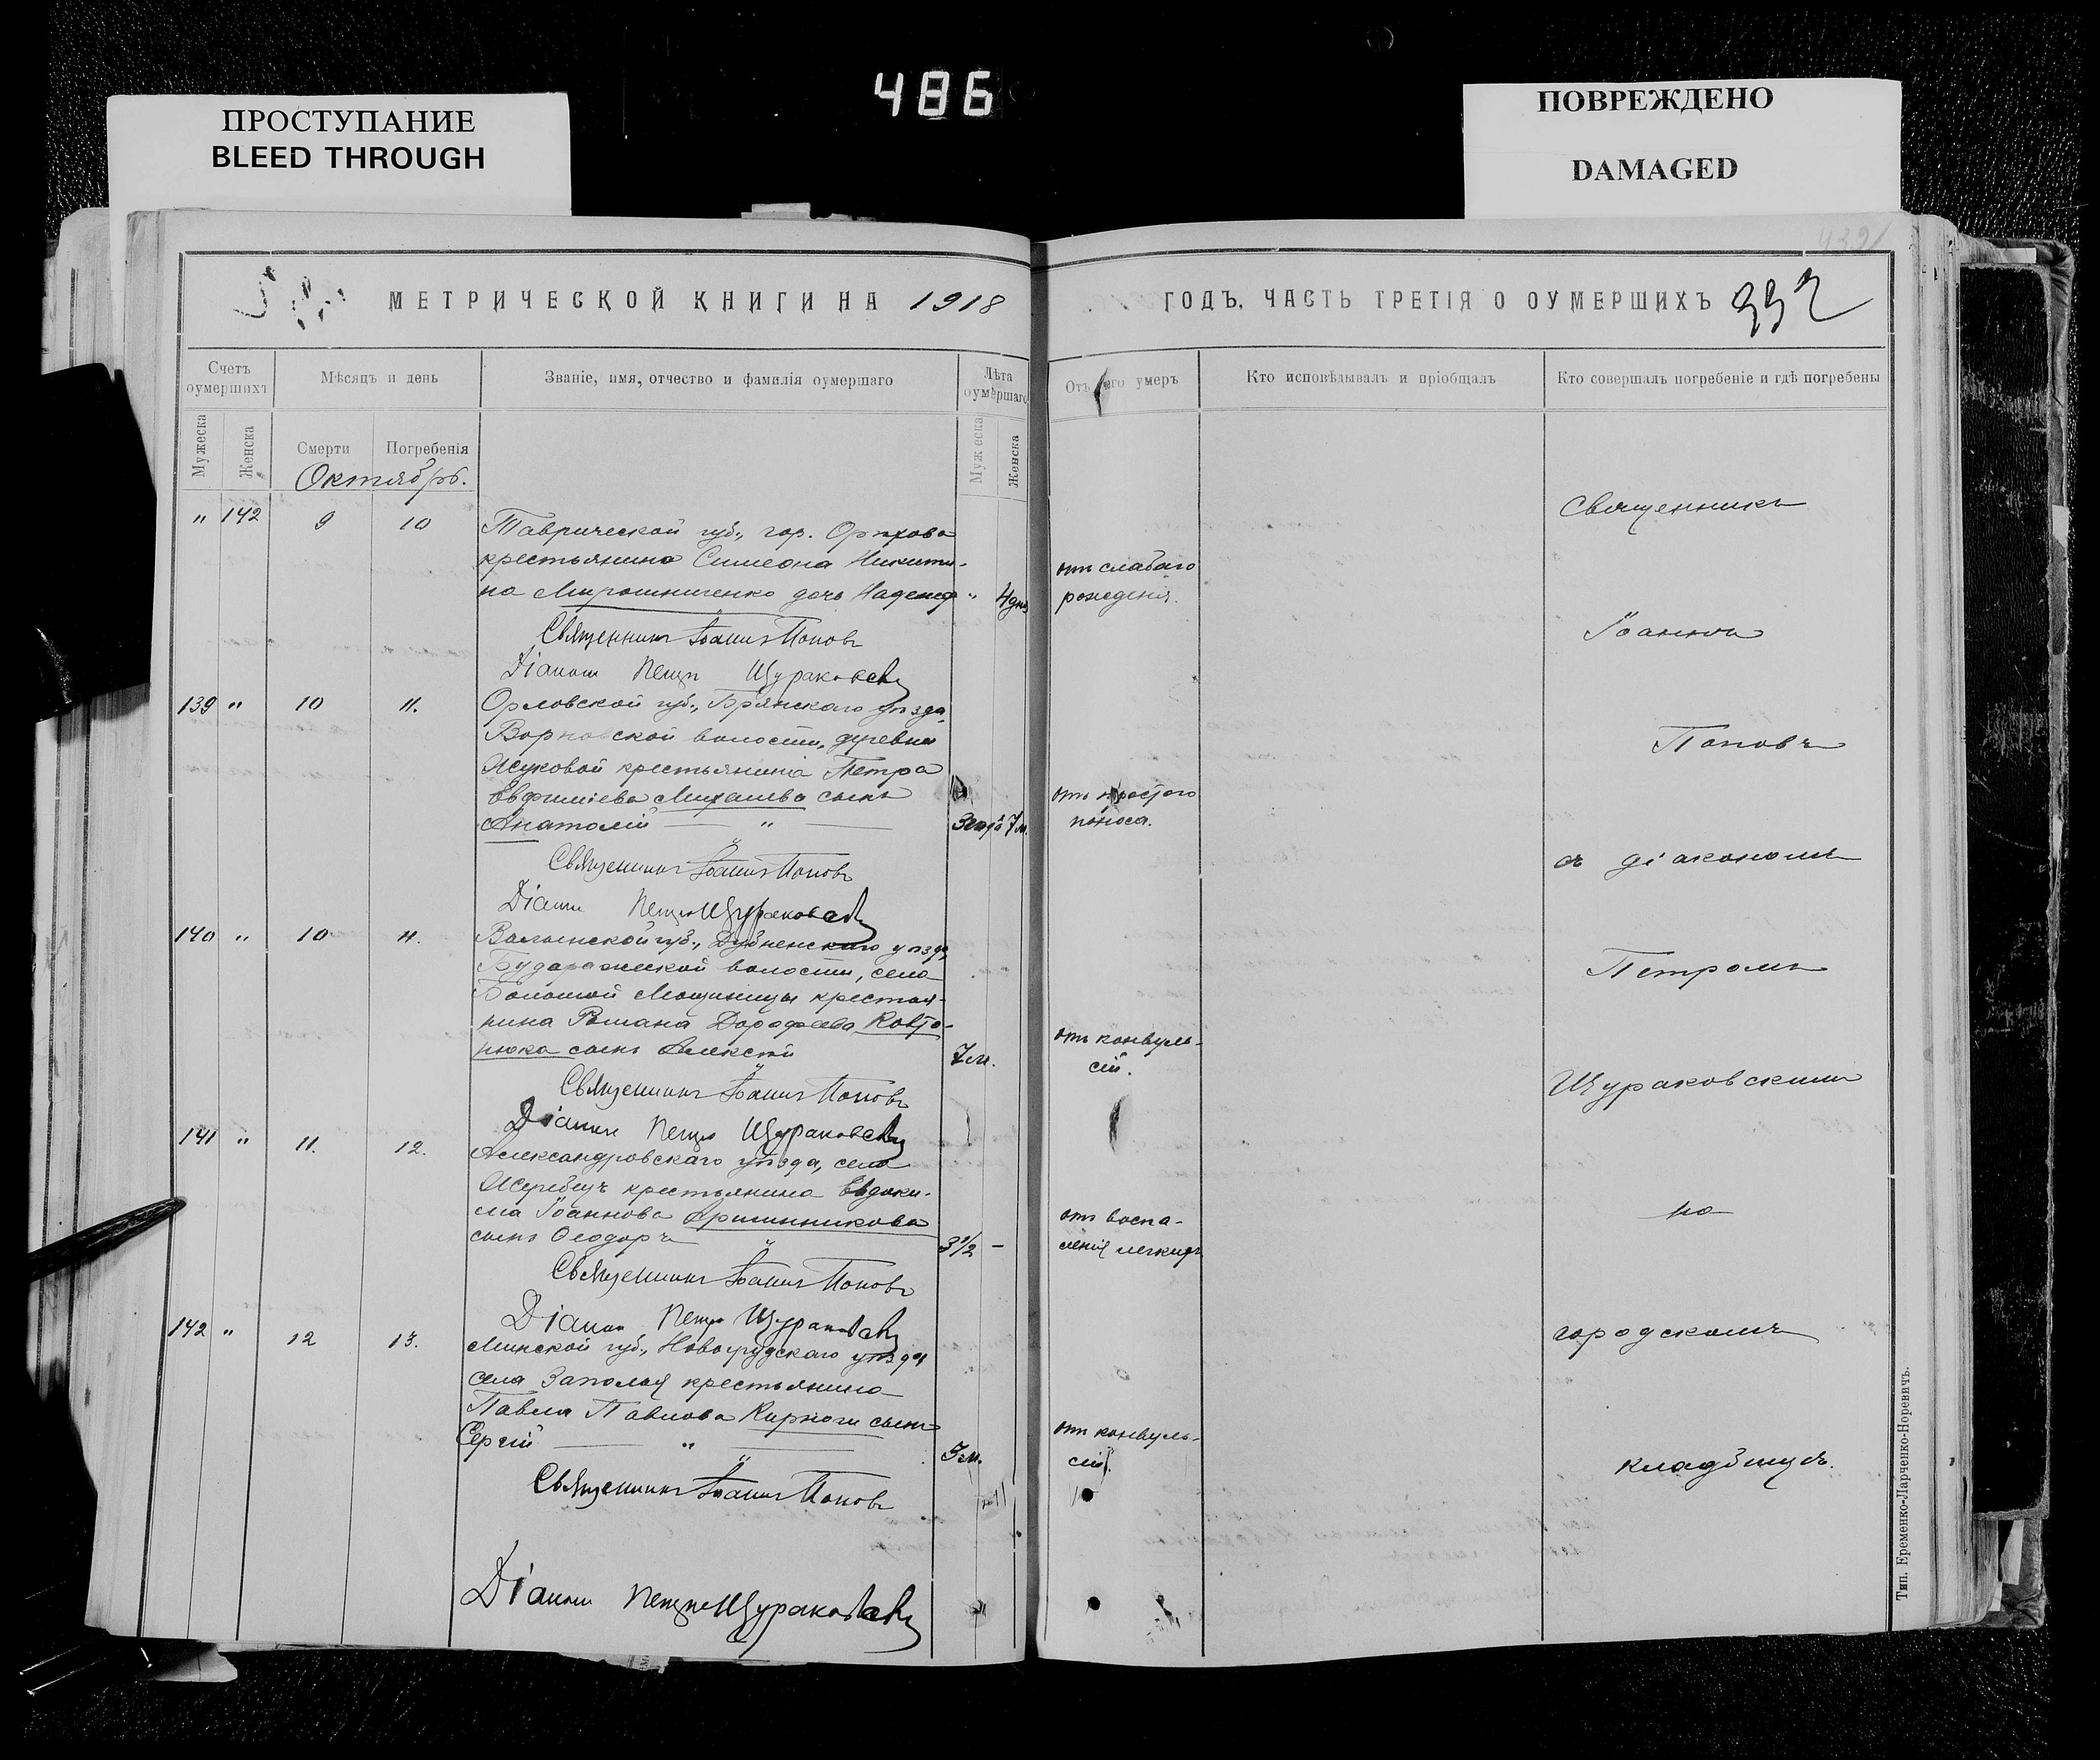 486
ПРОСТУПАНИЕ
BLEED THROUGH
ПОВРЕЖДЕНО
DAMAGED
МЕТРИЧЕСКОЙ КНИГИ НА 1918
ГОДЪ, ЧАСТЬ ТРЕТІЯ О ОУМЕРШИХЪ
Счетъ оумершихъ
Мѣсяцъ и день
Званіе, имя, отчество и фамилія оумершаго
Лѣта оумершаго
Мужеска
Женска
Смерти
Погребенія
Мужеска
Женска
Октябрь.
" 142 9 10
Таврической губ., гор. Орѣхова
крестьянина Симеона Никити-
на Мирошниченко дочь Надежд " 4 дня
Священникъ Іоаннъ Поповъ
Діаконъ Петръ Щураковскій
139 " 10 11.
Орловской губ., Брянскаго уѣзда,
волости, деревни
Жуковой крестьянина Петра
Евфиміева Михалева сынъ
Анатолій " 3 года 7 м.
Священникъ Іоаннъ Поповъ
Діаконъ Петръ Щураковскій
140 " 10 11.
Волынской губ., Дубненскаго уѣзда,
Бударажской волости, села
Мощаницы крестья-
нина Романа Дорофеева
сынъ Алексѣй 7 м.
Священникъ Іоаннъ Поповъ
Діаконъ Петръ Щураковскій
141 " 11. 12.
Александровскаго уѣзда, села
Жеребецъ крестьянина Евдоки-
ма Іоаннова
сынъ Ѳеодоръ " 3½ -
Священникъ Іоаннъ Поповъ
Діаконъ Петръ Щураковскій
142 " 12 13.
Минской губ., Новогрудскаго уѣзда
села Заполья крестьянина
Павла Павлова сынъ
Сергій " м.
Священникъ Іоаннъ Поповъ
Діаконъ Петръ Щураковскій
Отъ чего умеръ
Кто исповѣдывалъ и пріобщалъ
Кто совершалъ погребеніе и гдѣ погребены
отъ слабаго
рожденія.
отъ простого
поноса.
отъ конвуль-
сій.
отъ воспа-
ленія легкихъ
отъ конвуль-
сій.
Священникъ
Іоаннъ
Поповъ
съ діакономъ
Петромъ
Щураковскимъ
на
городскомъ
кладбищѣ.
Тип. Еременко-Ларченко-Норевичъ.